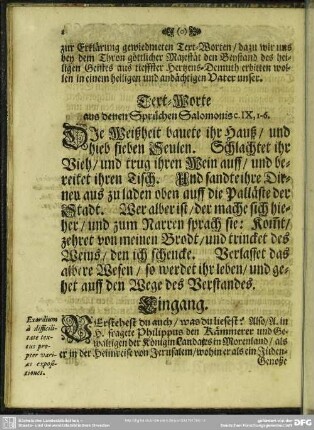 2 (0)
zur Erklärung gewiedmeten Text-Worten / dazu wir uns
bey dem Thron göttlicher Majestät den Beystand des hei-
ligen Geistes aus tieffster Hertzens-Demuth erbitten wol-
len in einem heiligen und andächtigen Vater unser.
Text-Worte
aus denen Sprüchen Salomonis c. IX, 1-6.
DJe Weißheit bauete ihr Hauß / und
hieb sieben Seulen. Schlachtet ihr
Vieh / und trug ihren Wein auff / und be-
reitet ihren Tisch. Und sandte ihre Dir-
nen aus zu laden oben auff die Palläste der
Stadt. Wer alber ist / der mache sich hie-
her / und zum Narren sprach sie: Kom̃t /
zehret von meinen Brodt / und trincket des
Weins / den ich schencke. Verlasset das
albere Wesen / so werdet ihr leben / und ge-
het auff den Wege des Verstandes.
Eingang.
Exordium
à difficili-
tate tex-
tus pro-
pter vari-
as exposi-
tiones.
VErstehest du auch / was du liesest? Also / A. in
H. fragte Philippus den Kämmerer und Ge-
waltigen der Königin Candaces in Morenland / als
er in der Heimreise von Jerusalem / wohin er als ein Jüden-
Genosse